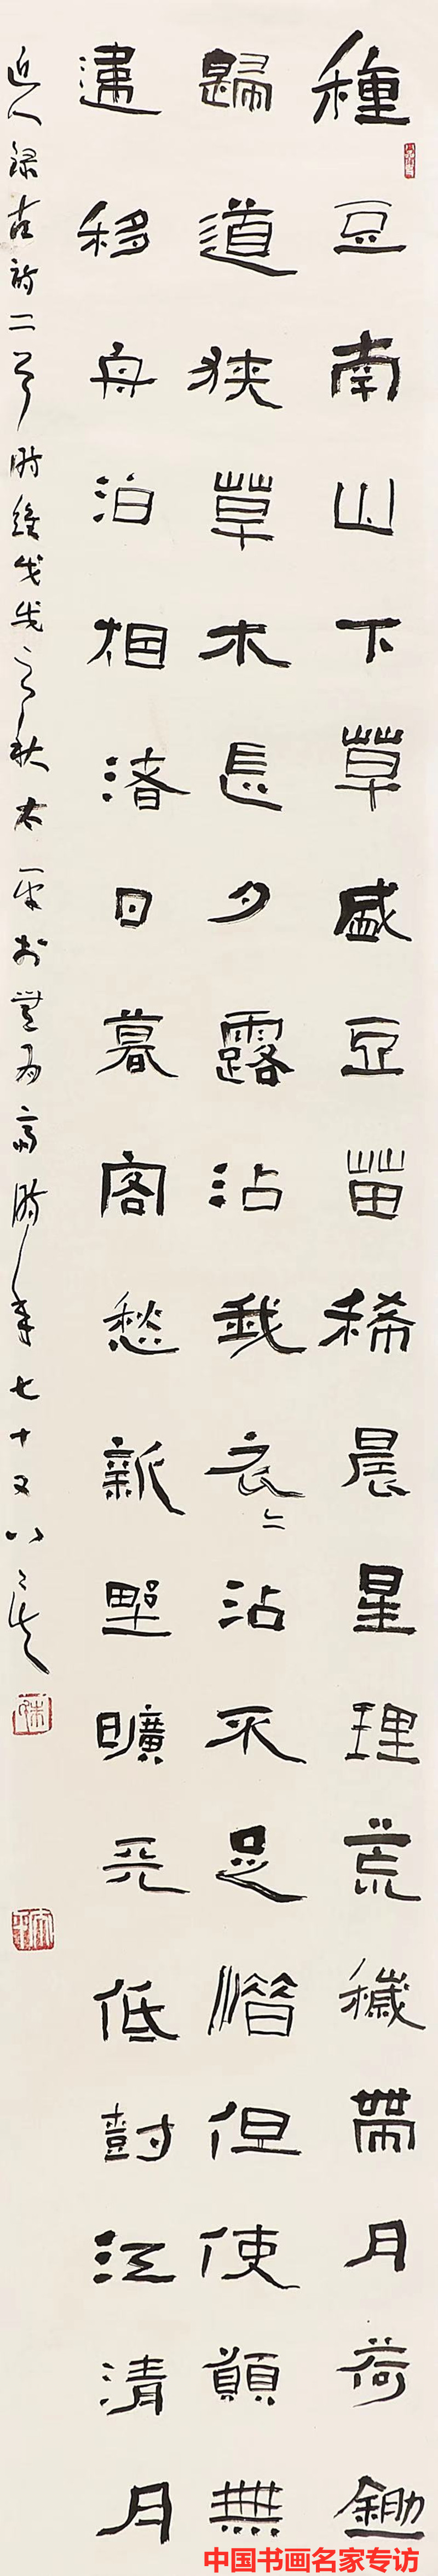 種豆南山下草盛豆苗稀晨星理荒穢帶月荷鋤
歸道狹草木長夕露沾我衣〻沾不足惜但使願無
違移舟泊烟渚日暮客愁新野曠天低尌江清月
近人录古诗二首时维戊戌之秋太平於無为斋时年七十又八
中国书画名家专访